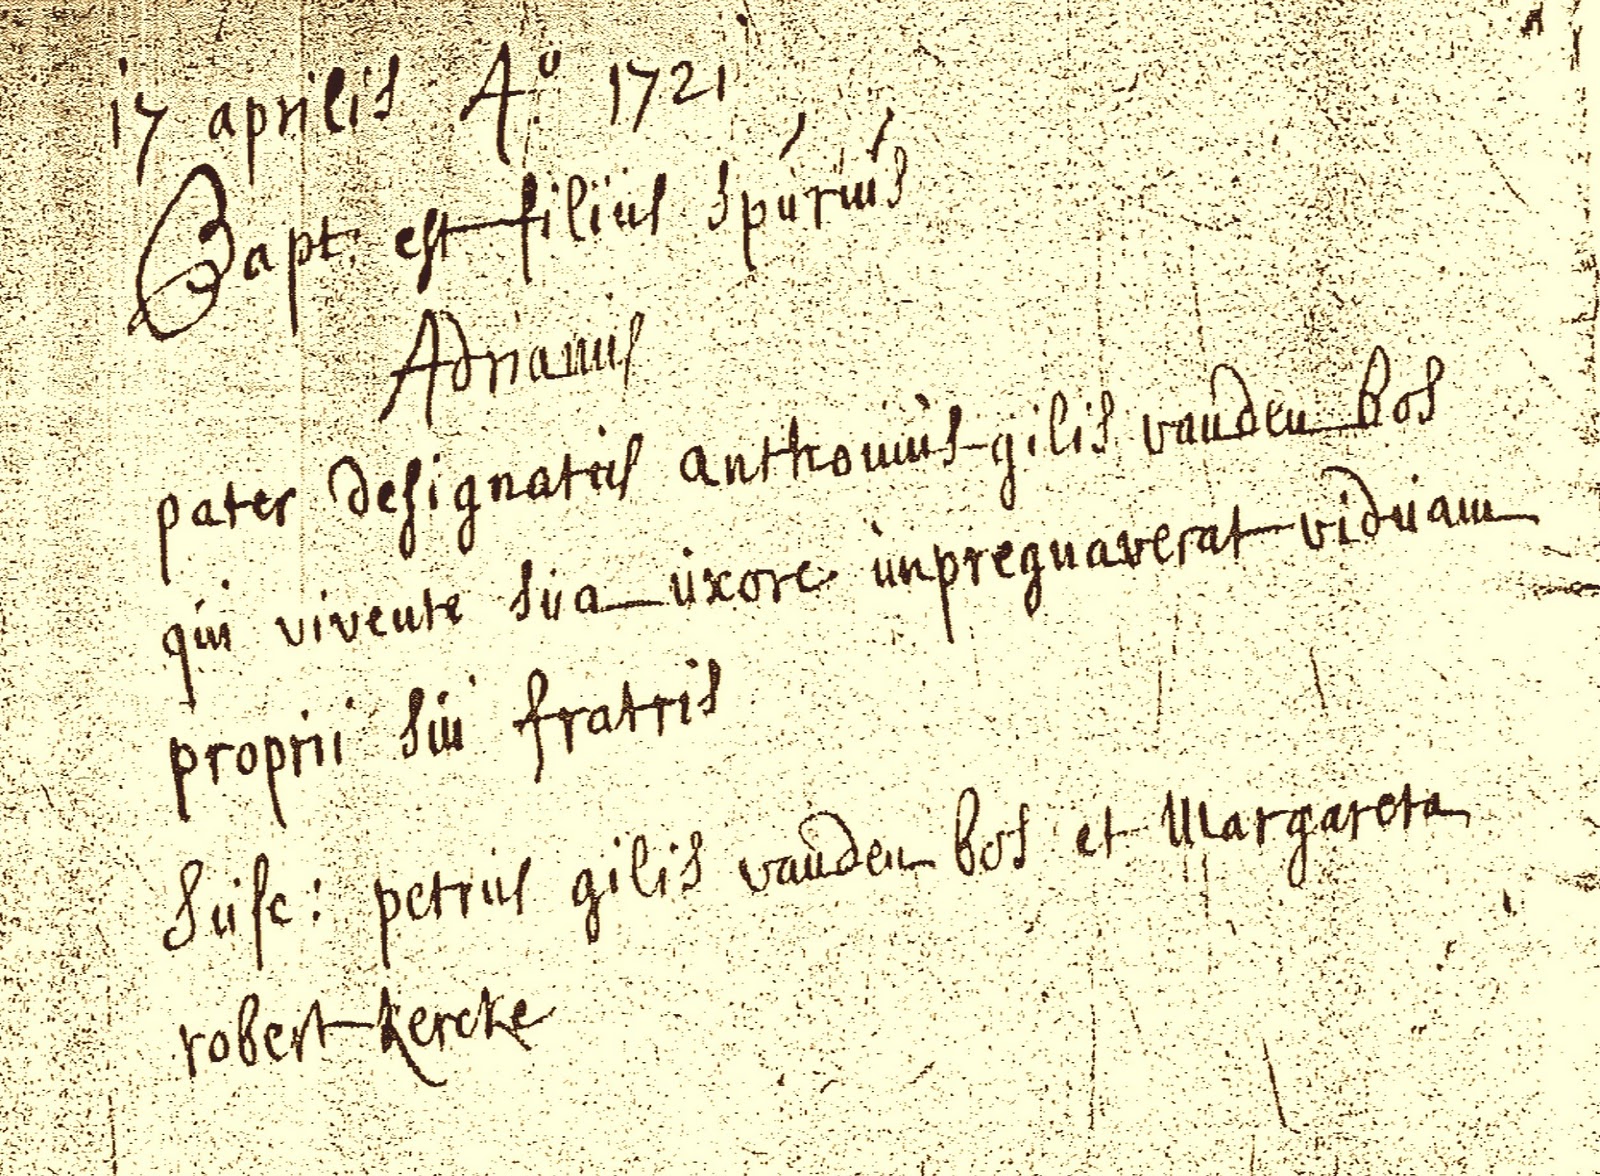 17 aprilis A⁰ 1721
Bapt: est filius spurius
Adrianus
pater designatus anthonius gilis vanden bos
qui vivente sua uxore inpregnaverat viduam
proprii sui fratris
Susc: petrus gilis vanden bos et Margareta
robert kercke